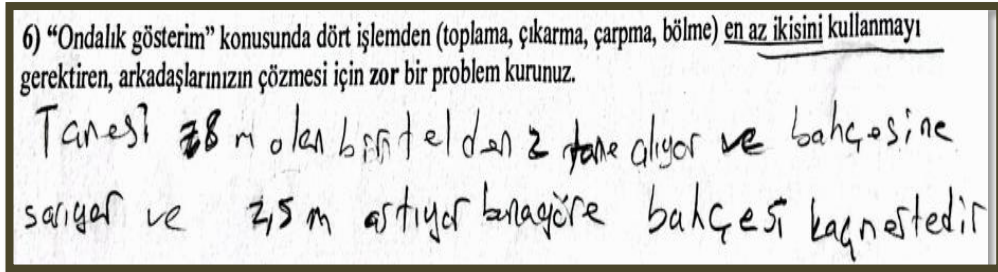 6) “Ondalık gösterim” konusunda dört işlemden (toplama, çıkarma, çarpma, bölme) en az ikisini kullanmayı
gerektiren, arkadaşlarınızın çözmesi için zor bir problem kurunuz.
Tanesi 78 m olan bir telden 2 tane alıyor ve bahçesine
sarıyor ve 2,5 m artıyor bunagöre bahçesi kaçmetredir